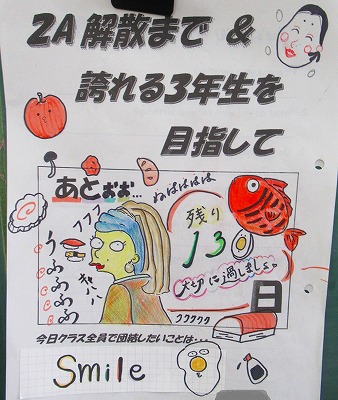 2A 解散まで &
誇れる3年生を
目指して
あとぉぉ…
ぬはははは
フフフ
うふふふふ
キャハハ
残り
13
大切に過しましょ。
日
ククククク
今日クラス全員で団結したいことは…
Smile